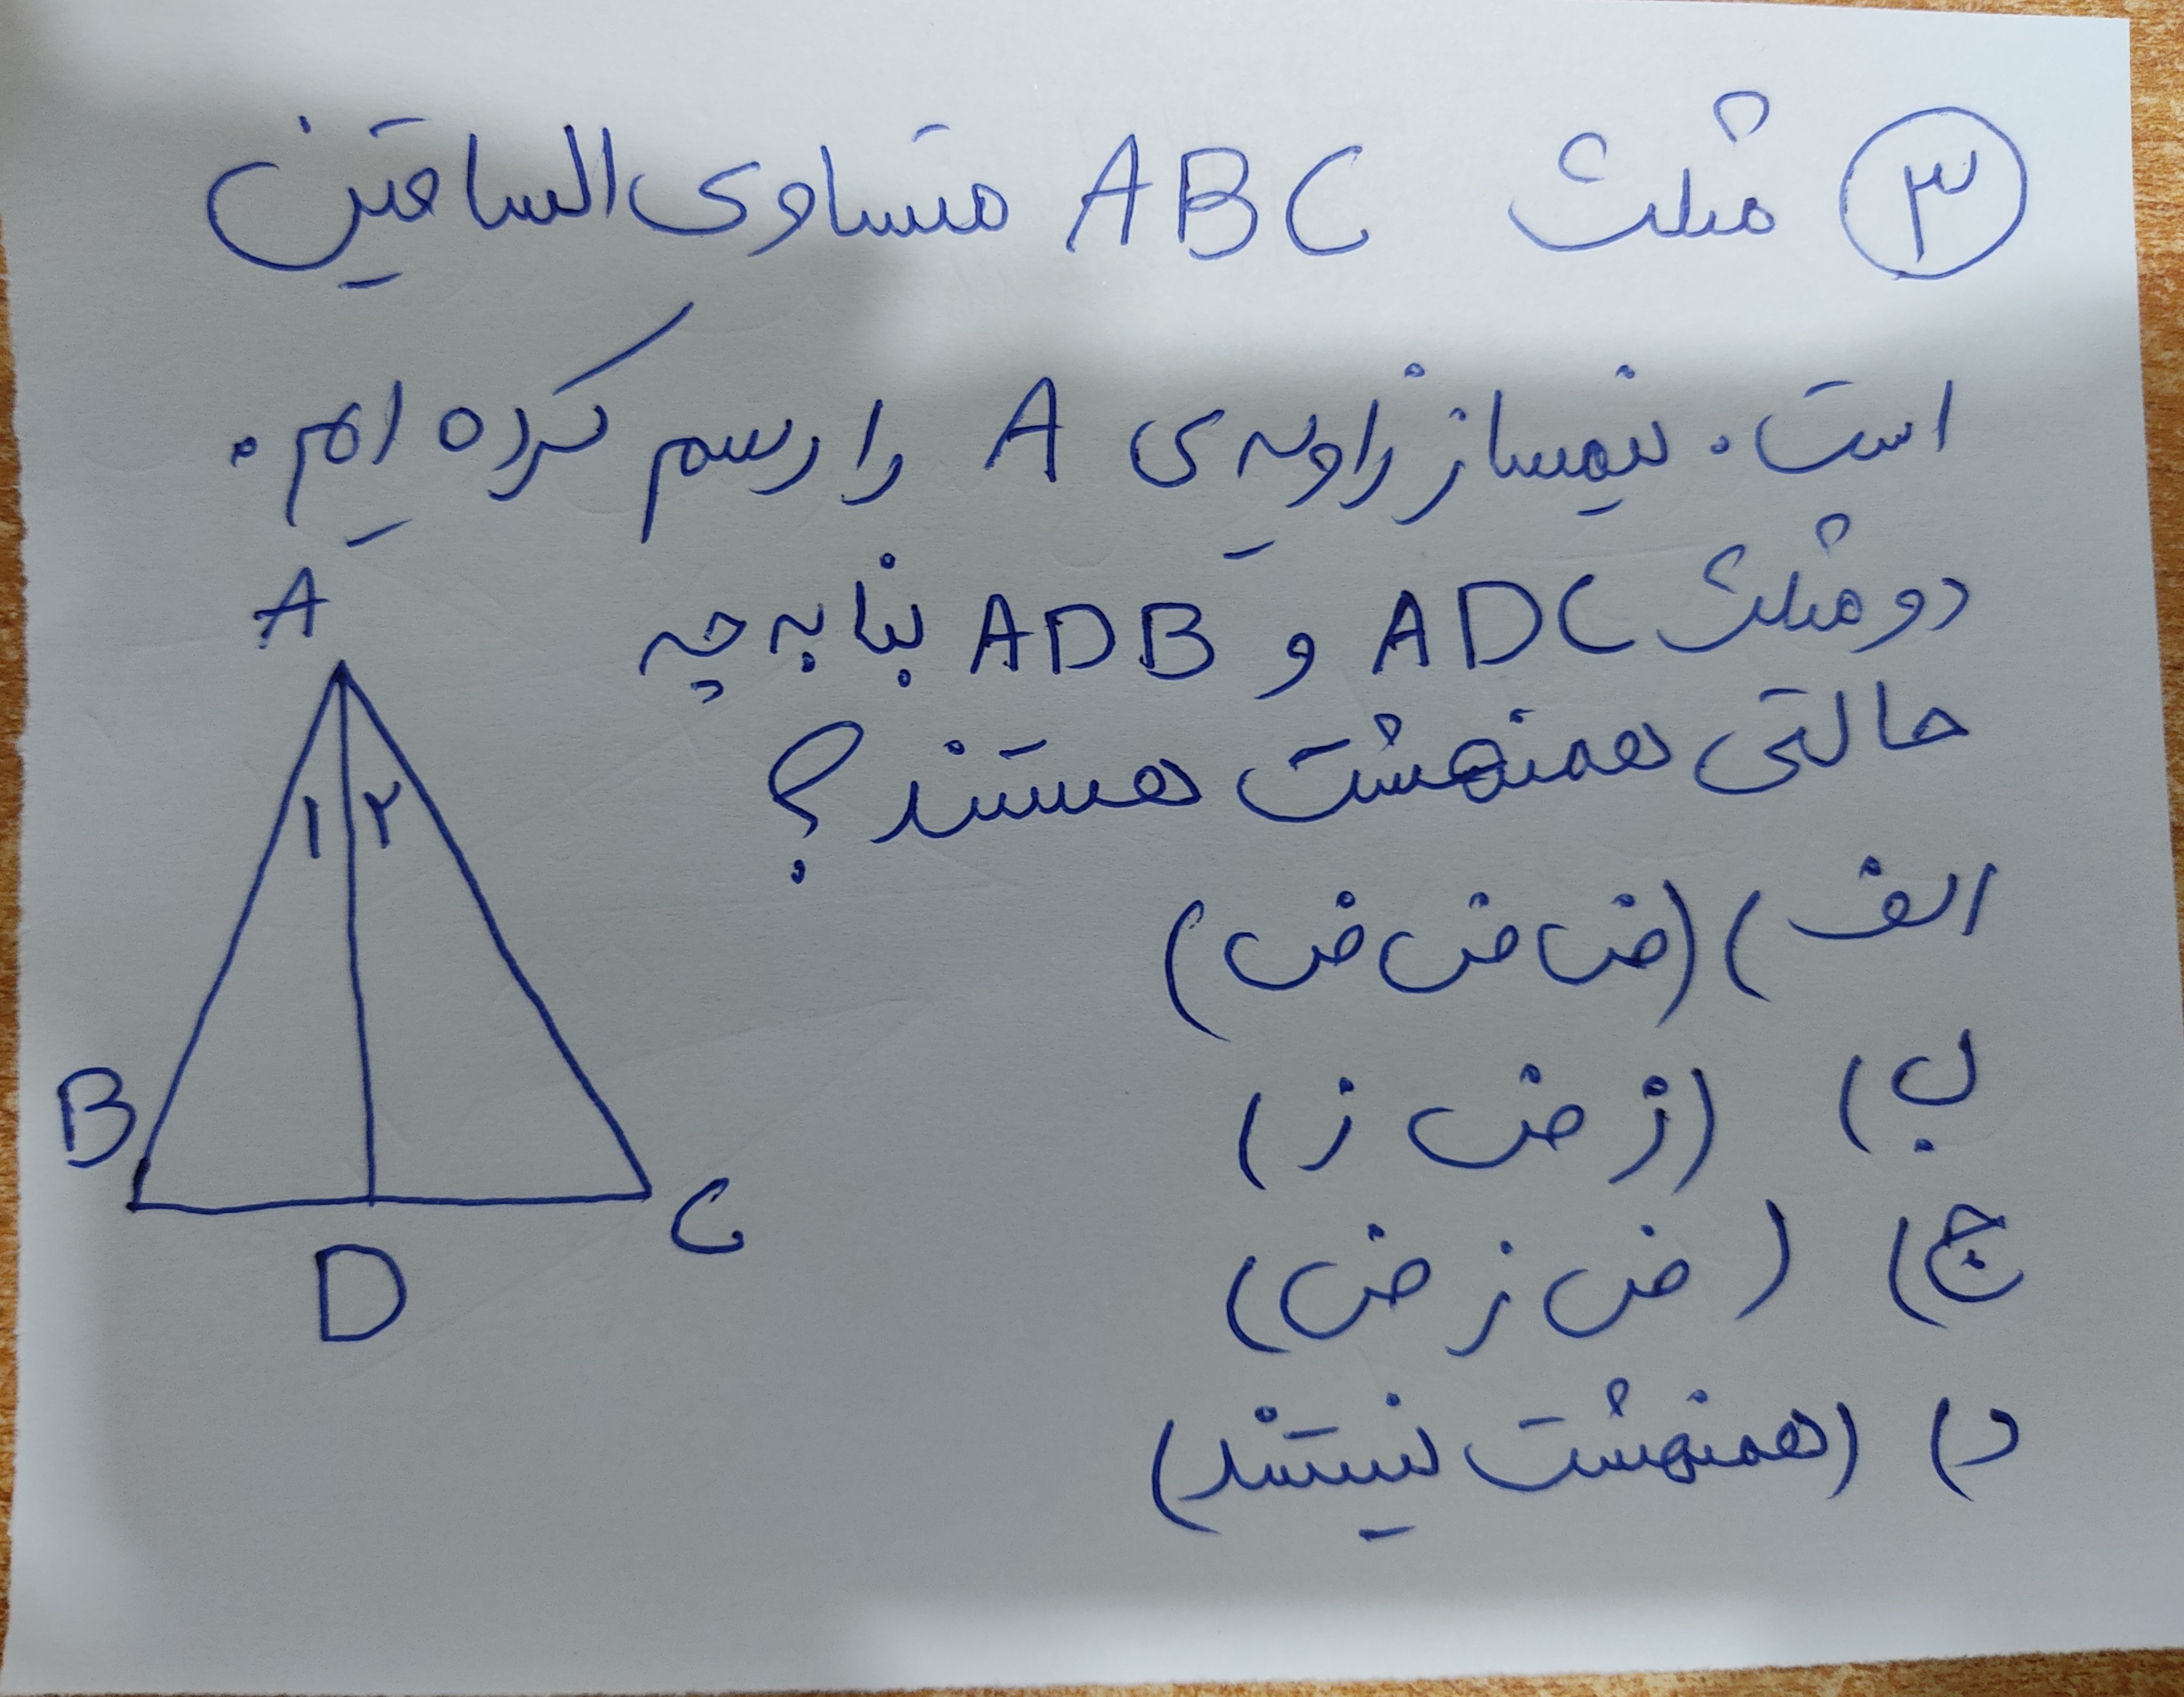 ۳ مثلث ABC متساوی الساقین
است. نیمساز زاویه ی A را رسم کرده ایم.
دو مثلث ADC و ADB بنا به چه
حالتی همنهشت هستند؟
الف) (ض ض ض)
ب) (ز ض ز)
ج) (ض ز ض)
د) (همنهشت نیستند)
A
۱ ۲
B
C
D